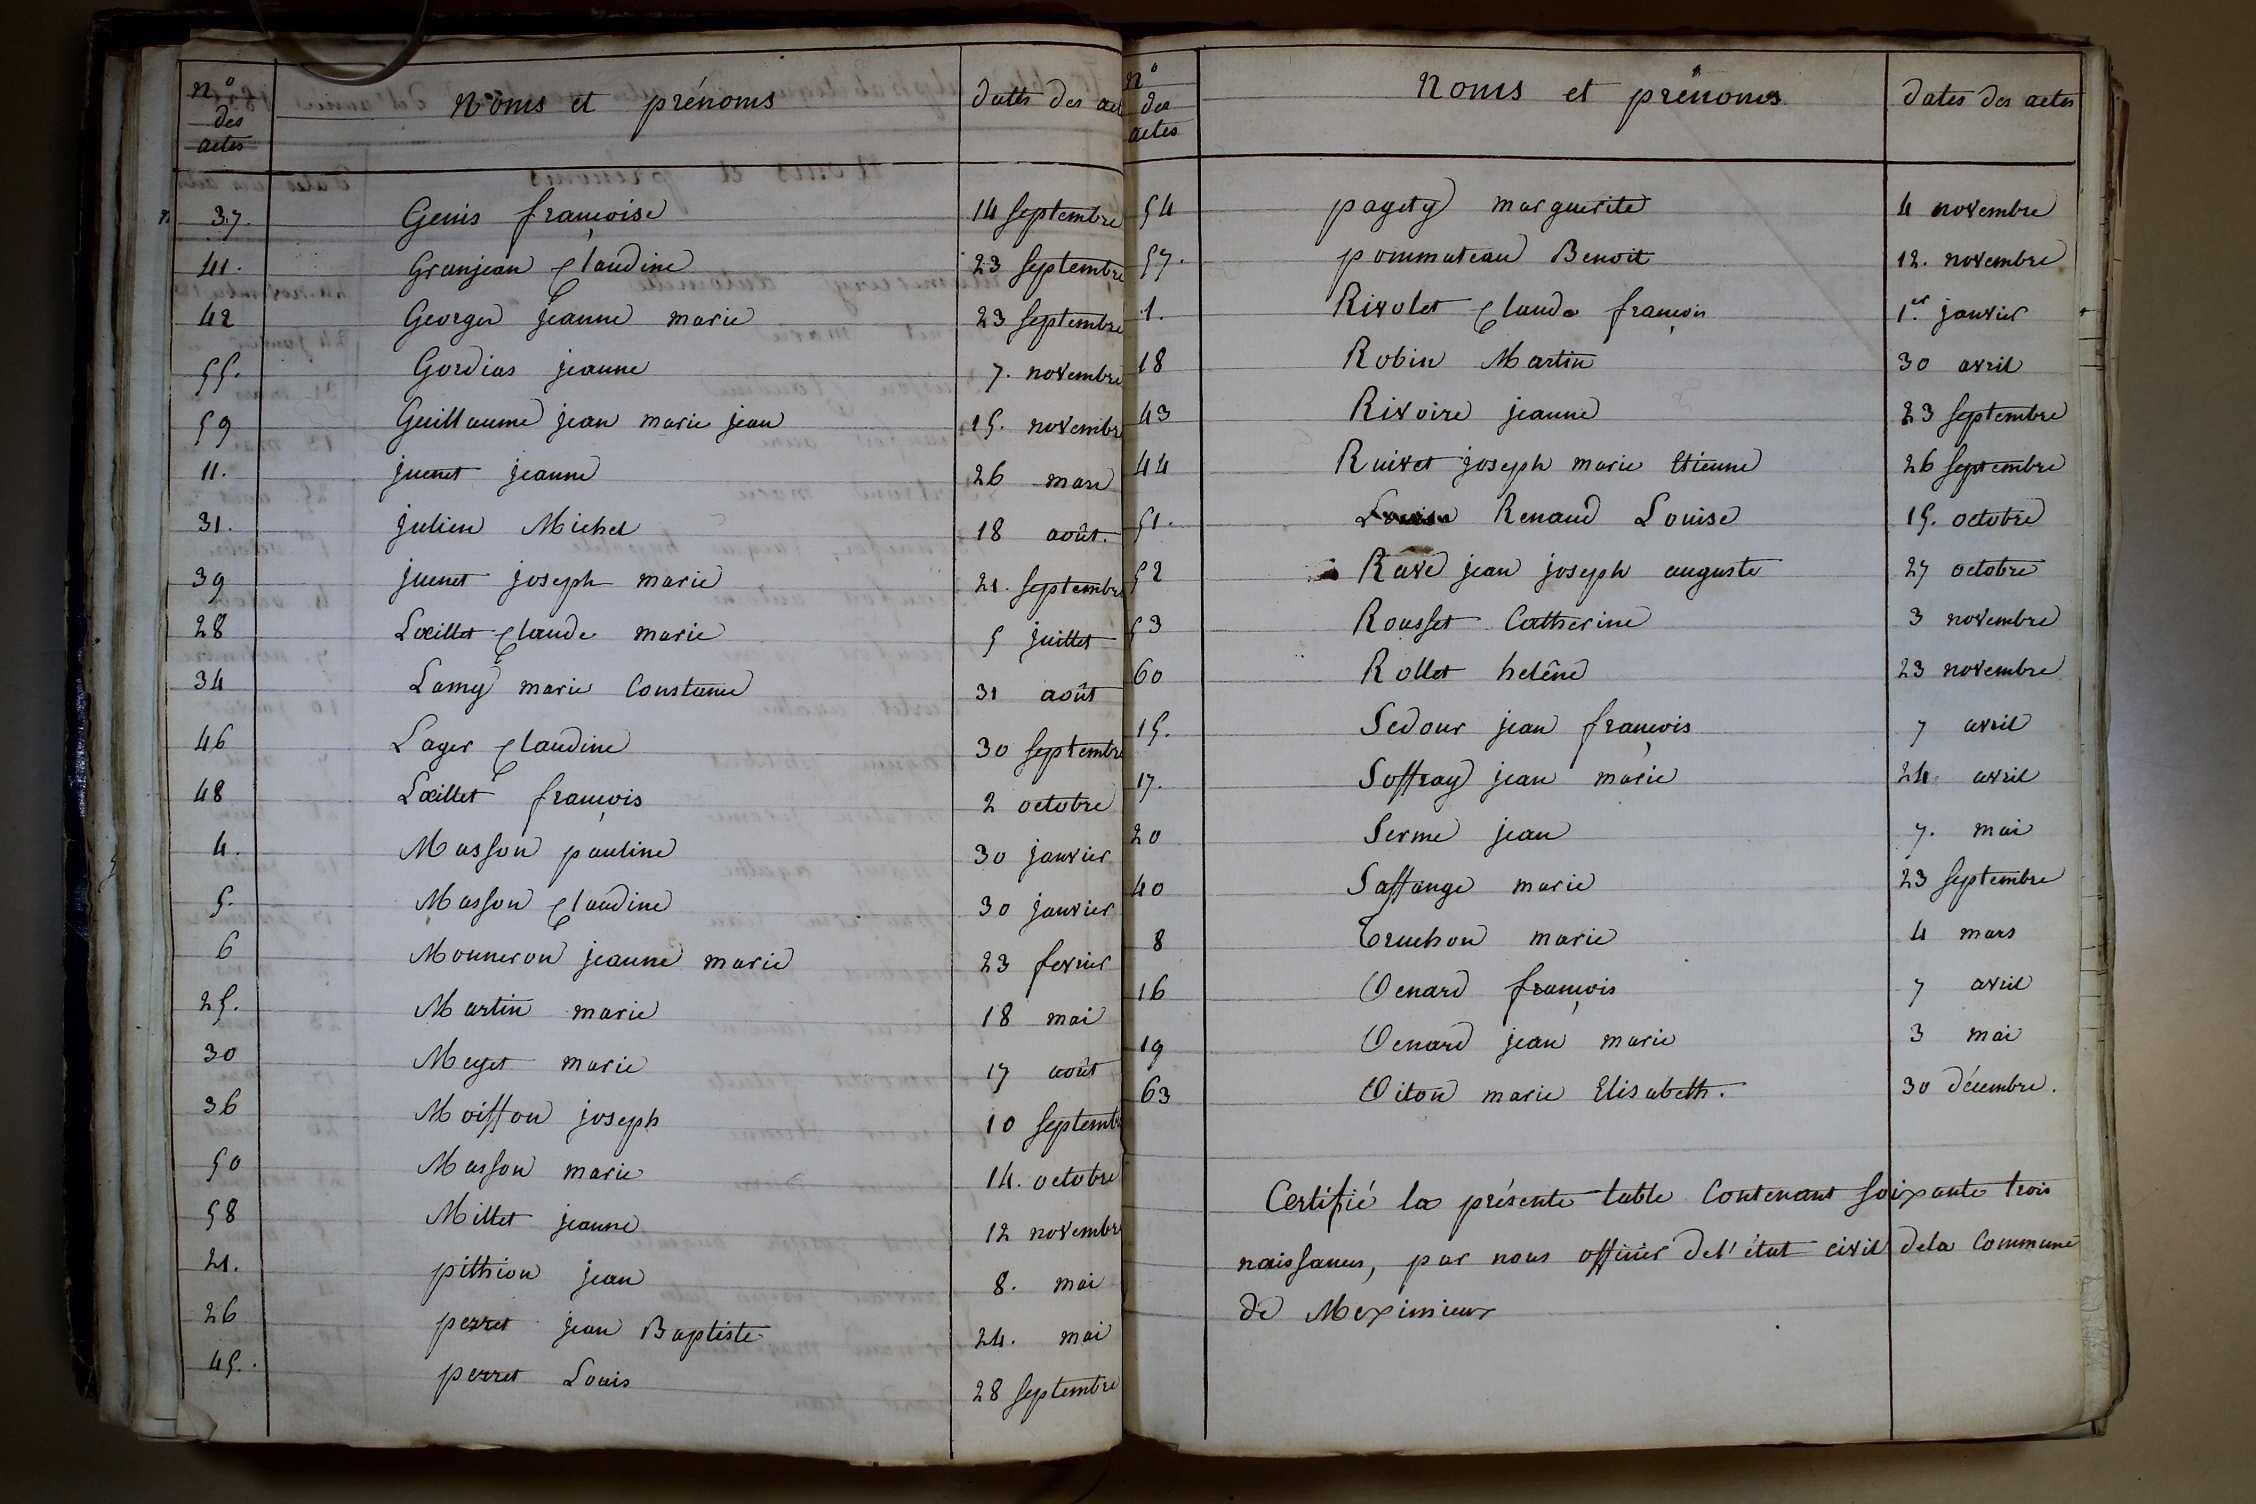 n.o
des
actes
noms et prénoms
dates des act
37. Genis françoise 14 septembre
41. Granjean Claudine 23 septembre
42 Georges jeanne marie 23 septembre
55. Gordias jeanne 7. novembre
59 Guillaume jean marie jean 15. novembre
11. juenet jeanne 26 mars
31. julien Michel 18 août.
39 juenet joseph marie 21. septembre
28 Lœillet Claude marie 5 juillet
34 Lamy marie Constance 31 août
46 Lager Claudine 30 septembre
48 Lœillet françois 2 octobre
4. Masson pauline 30 janvier
5. Masson Claudine 30 janvier
6 Monneron jeanne marie 23 fevrier
25. Martin marie 18 mai
30 Meget marie 17 août
36 Moiffon joseph 10 septembre
50 Masson marie 14. octobre
58 Millet jeanne 12 novembre
21. pithion jean 8. mai
26 perret jean Baptiste 24. mai
45. perret Louis 28 septembre
n.o
des
actes
noms et prénoms
dates des actes
54 pagety marguerite 4 novembre
57. pommateau Benoit 12. novembre
1. Rivolet Claude françois 1.er janvier
18 Robin Martin 30 avril
43 Rivoire jeanne 23 septembre
44 Ruivet joseph marie Etienne 26 septembre
51. Renaud Louise 15. octobre
52 Ravé jean joseph auguste 27 octobre
53 Rousset Catherine 3 novembre
60 Rollet helêne 23 novembre
15. Sedour jean françois 7 avril
17. Soffray jean marie 24 avril
20 Serme jean 7. mai
40 Saffange marie 23 septembre
8 Truchon marie 4 mars
16 Venard françois 7 avril
19 Venard jean marie 3 mai
63 Viton marie Elisabeth. 30 décembre.
Certifié la présente table Contenant soixante trois
naissances, par nous officier de l'état civil dela Commune
de Meximieux